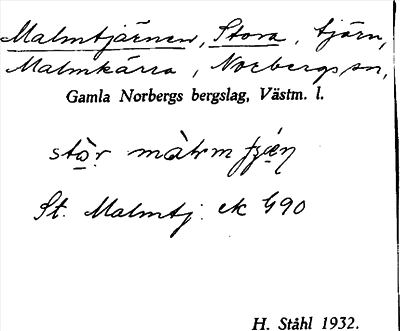 Malmtjärnen, Stora, tjärn,
Malmkärra, Norbergs sn,
Gamla Norbergs bergslag, Västm. l.
stòr màlm
St. Malmtj. ek G90
H. Ståhl 1932.